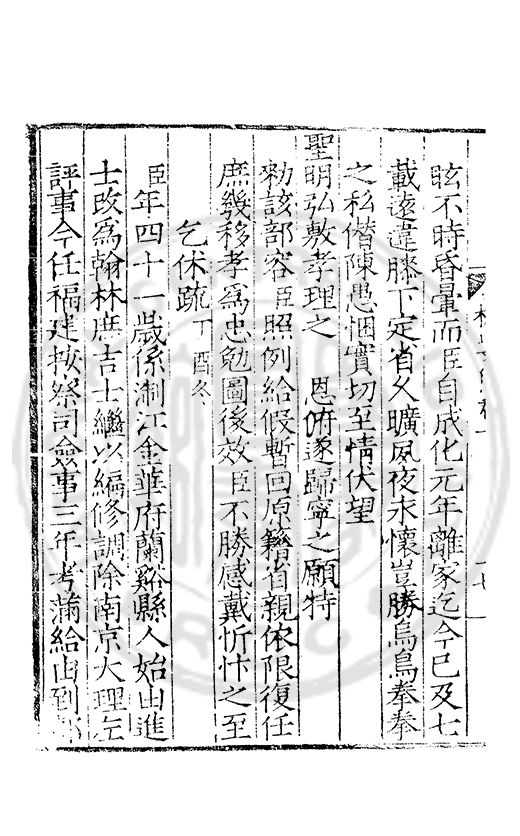 眩不時昏暈而臣自成化元年離家迄今已及七
載遠違膝下定省久曠夙夜永懷豈勝烏鳥拳拳
之私僣陳愚悃實切至情伏望
聖明弘敷孝理之　恩俯遂歸寧之願特
勑該部容臣照例給假暫回原籍省親依限復任
庶幾移孝爲忠勉圖後效臣不勝感戴忻忭之至
乞休疏丁酉冬
臣年四十一歲係浙江金華府蘭谿縣人始由進
士改爲翰林庶吉士繼以編修調除南京大理左
評事今任福建按察司僉事三年考滿給由到部